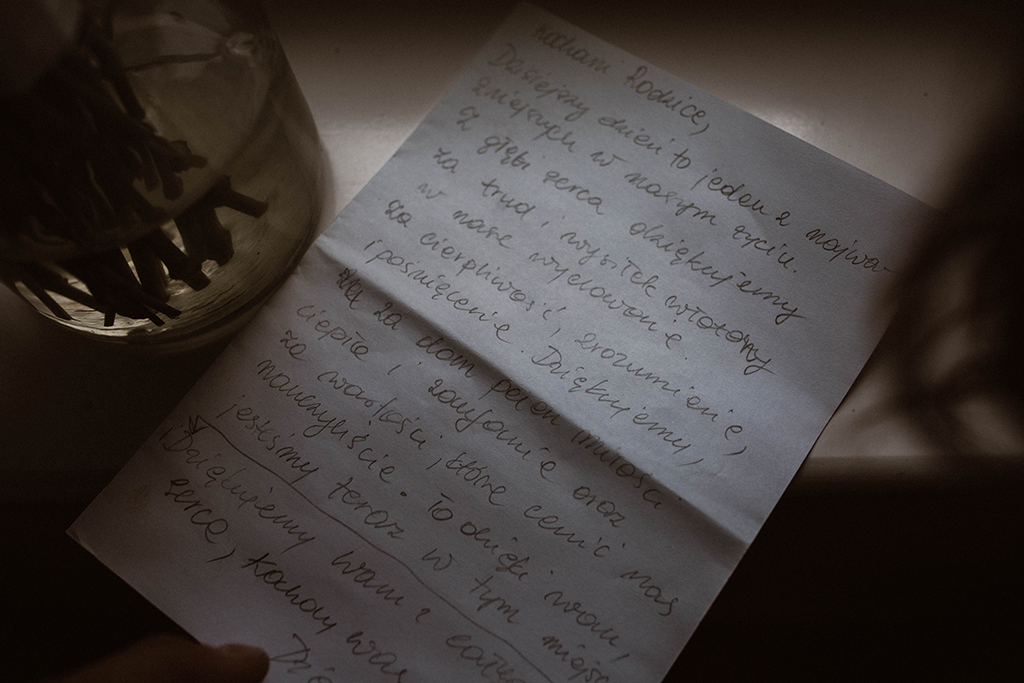 Kochani Rodzice,
Dzisiejszy dzień to jeden z najwa-
żniejszych w naszym życiu.
Z głębi serca dziękujemy
za trud i wysiłek włożony
w nasze wychowanie.
Za cierpliwość, zrozumienie,
i poświęcenie. Dziękujemy,
za dom pełen miłości
ciepła i zaufania oraz
za wartości, które cenić nas
nauczyliście. To dzięki wam,
jesteśmy teraz w tym miejsc
Dziękujemy wam z całego
serca, Kochamy was
Dzię